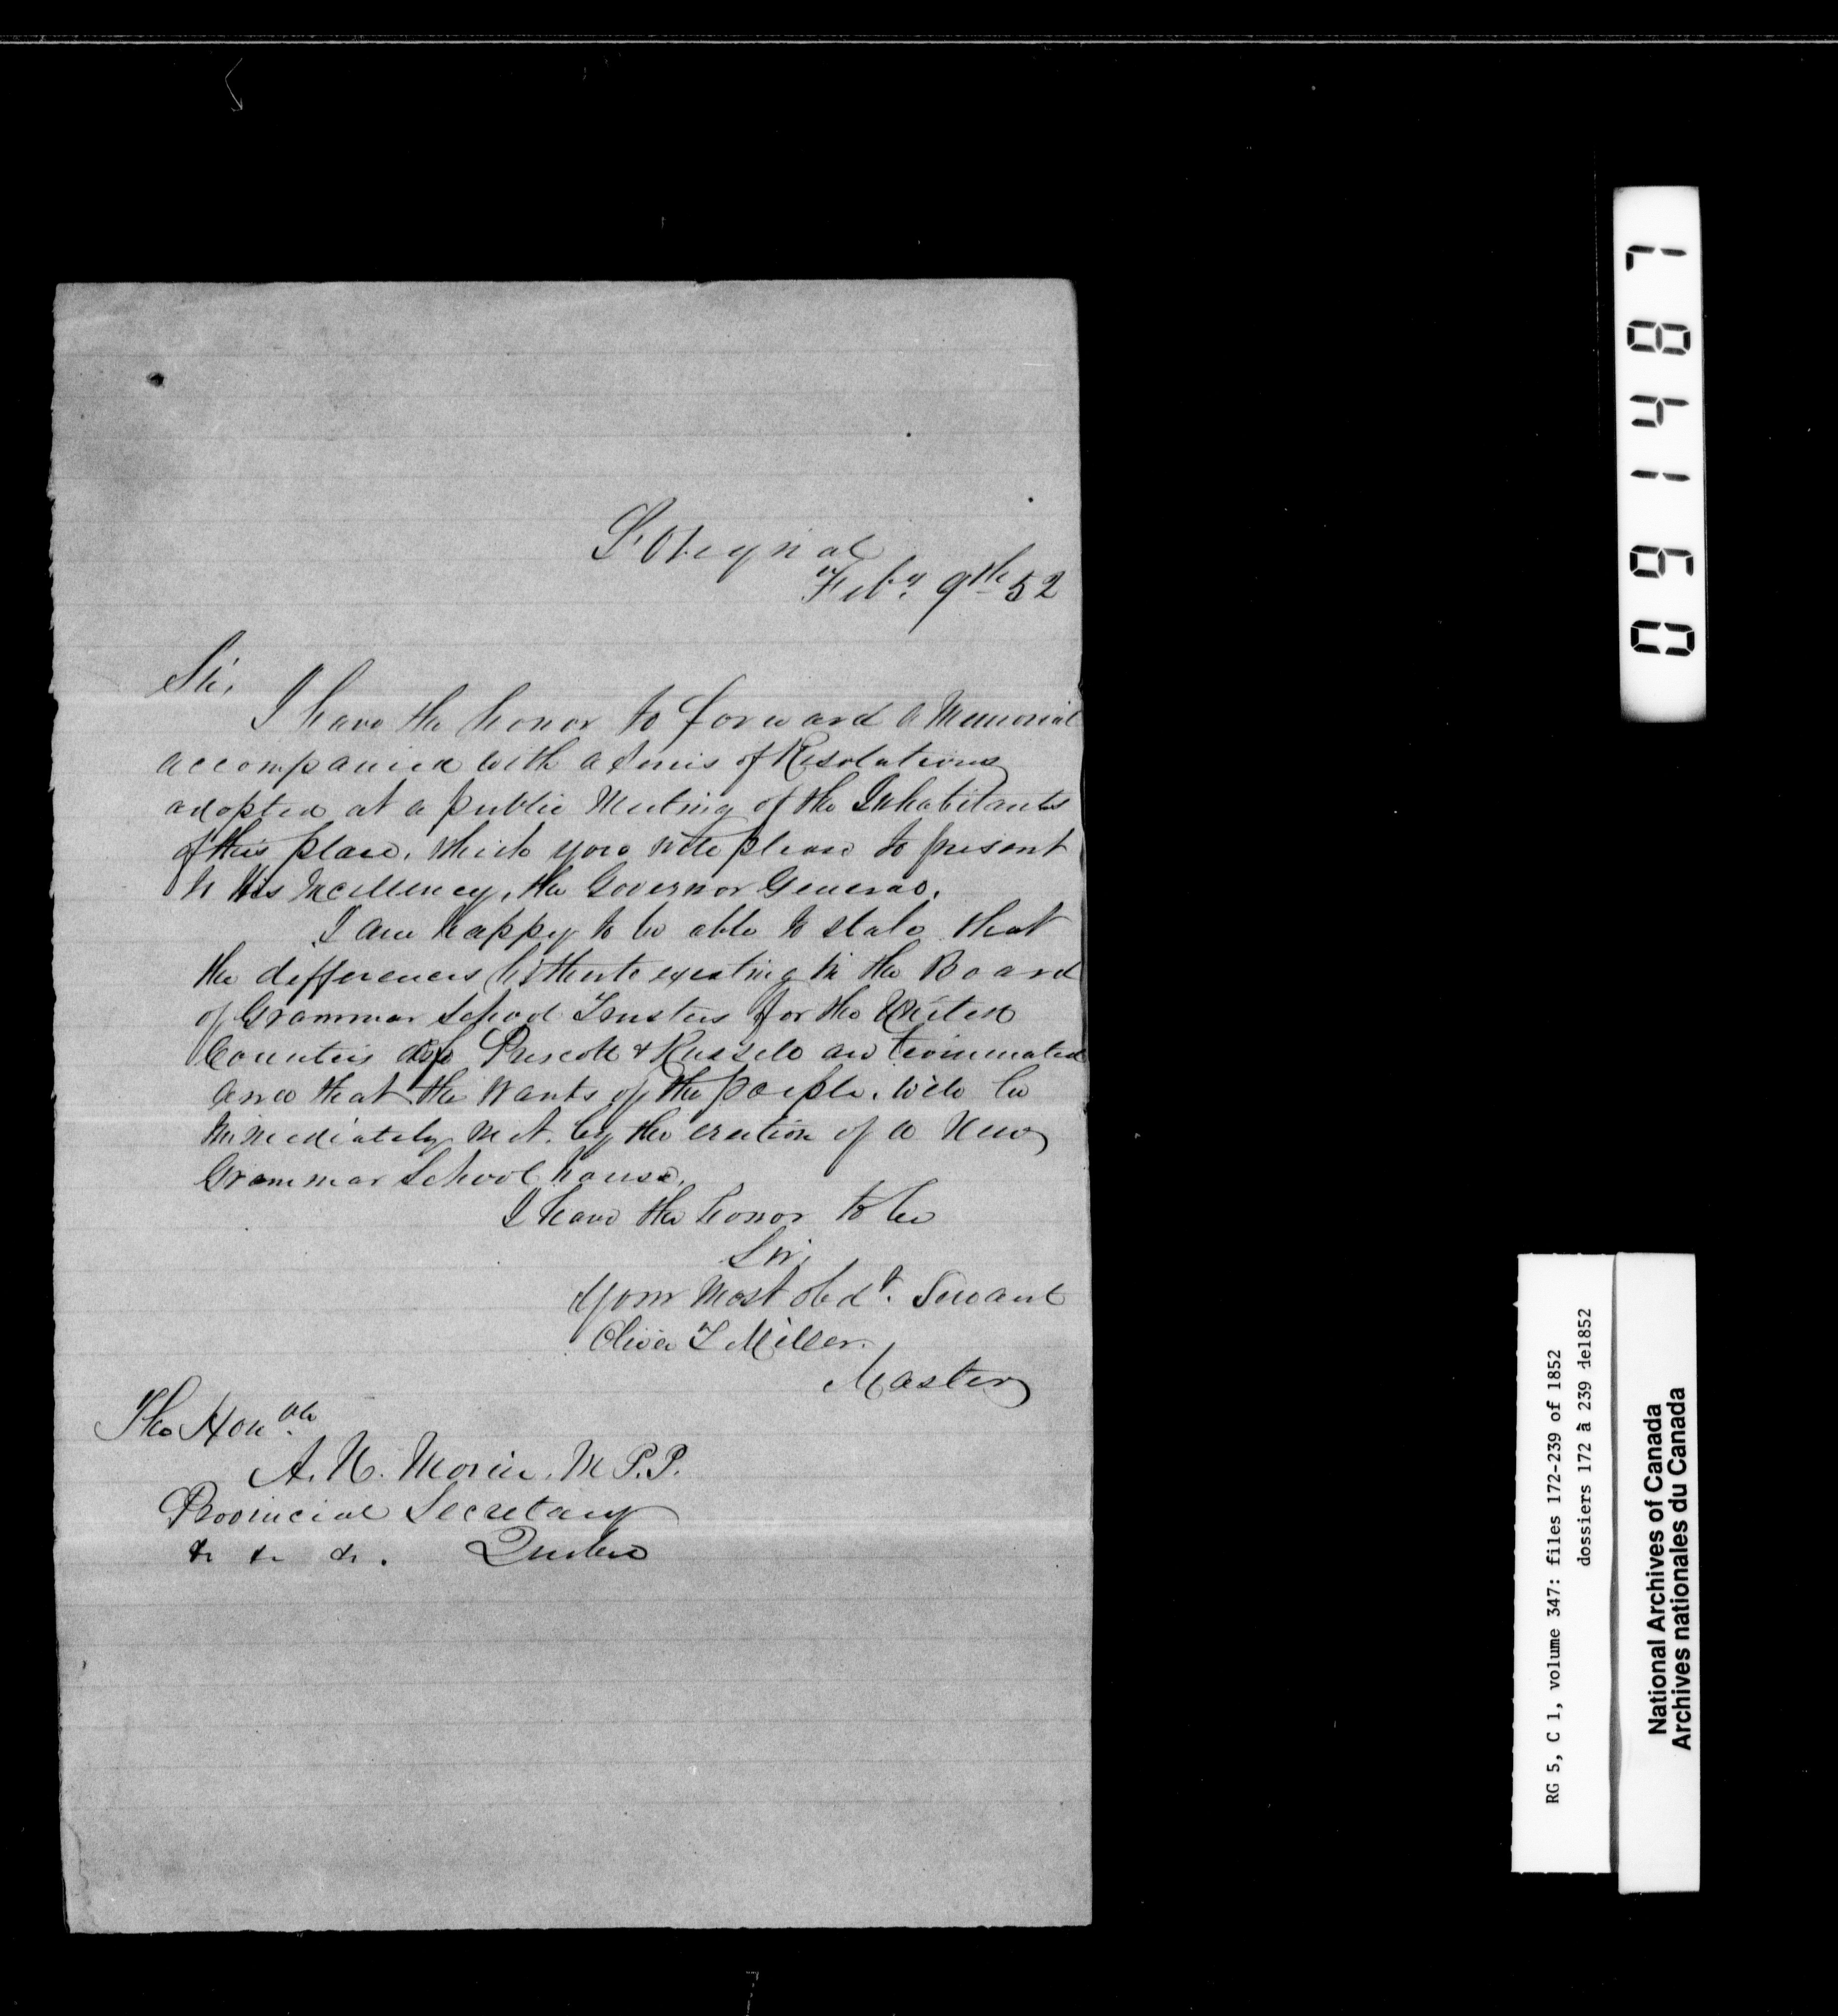 L'Orignal
Feby. 9th 52
Sir,
I have the honor to forward a Memorial
accompanied with a series of Resolutions
adopted at a public Meeting of the Inhabitants
of this place, which you will please to present
to His Excellency, the Governor General.
I am happy to be able to state that
the differences hitherto existing in the Board
of Grammar School Trustees for the United
Counties of Prescott & Russell are terminated
and that the wants of the people, will be
immediately met, by the erection of a New
Grammar School house.
I have the honor to be
Sir,
Your Most obdt. Servant
Oliver T Miller.
Master
The Honble.
A. N. Morin. M P.P.
Provincial Secretary
&c &c &c. Quebec
0961487
RG 5, C 1, volume 347: files 172-239 of 1852
dossiers 172 à 239 de1852
National Archives of Canada
Archives nationales du Canada